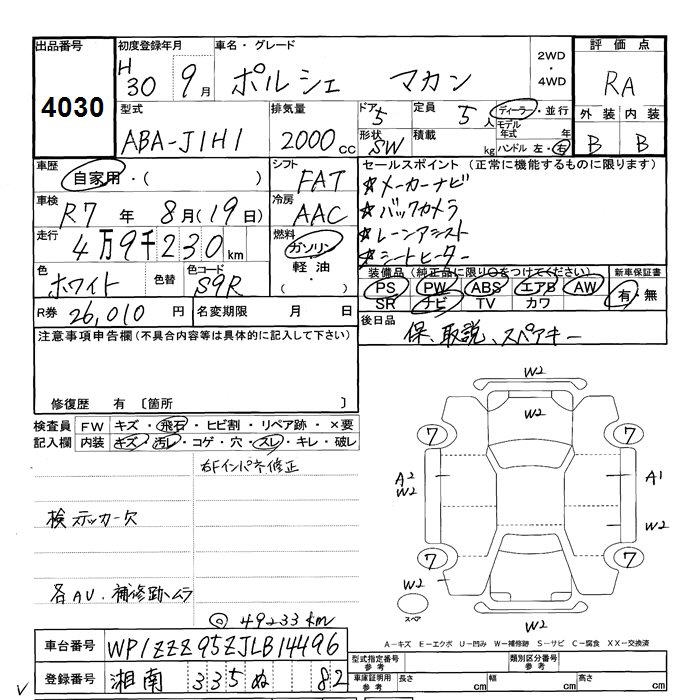 出品番号 4030
初度登録年月 H30 9月
車名・グレード ポルシェ マカン
2WD・4WD
評価点 RA
型式 ABA-J1H1
排気量 2000cc
ドア 5
形状 SW
定員 5人
積載 kg
ディーラー・並行
モデル年式 年
ハンドル 左・右
外装 B 内装 B
車歴 自家用・( )
シフト FAT
車検 R7年 8月(19日)
冷房 AAC
走行 4万9千230km
燃料 ガソリン 軽油・( ・ )
色 ホワイト 色替 色コード S9R
R券 26,010円 名変期限 月 日
セールスポイント(正常に機能するものに限ります)
☆メーカーナビ
☆バックカメラ
☆レーンアシスト
☆シートヒーター
装備品(純正品に限り○をつけてください)
PS PW ABS エアB AW
SR ナビ TV カワ
新車保証書 有・無
後日品 保、取説、スペアキー
注意事項申告欄(不具合内容等は具体的に記入して下さい)
修復歴 有〔箇所 〕
検査員記入欄
FW キズ・飛石・ヒビ割・リペア跡・×要
内装 キズ・汚レ・コゲ・穴・スレ・キレ・破レ
右Fインパネ修正
検ステッカー欠
各AU、補修跡、ムラ
◎49233km
W2
W2
7 7
A2 W2 A1
W2
7 7
W2
スペア
W2
A-キズ E-エクボ U-凹み W-補修跡 S-サビ C-腐食 XX-交換済
車台番号 WP1ZZZ95ZJLB14496
登録番号 湘南 335 ぬ 82
型式指定番号 参考 類別区分番号 参考
車庫証明用 参考 長さ cm 幅 cm 高さ cm